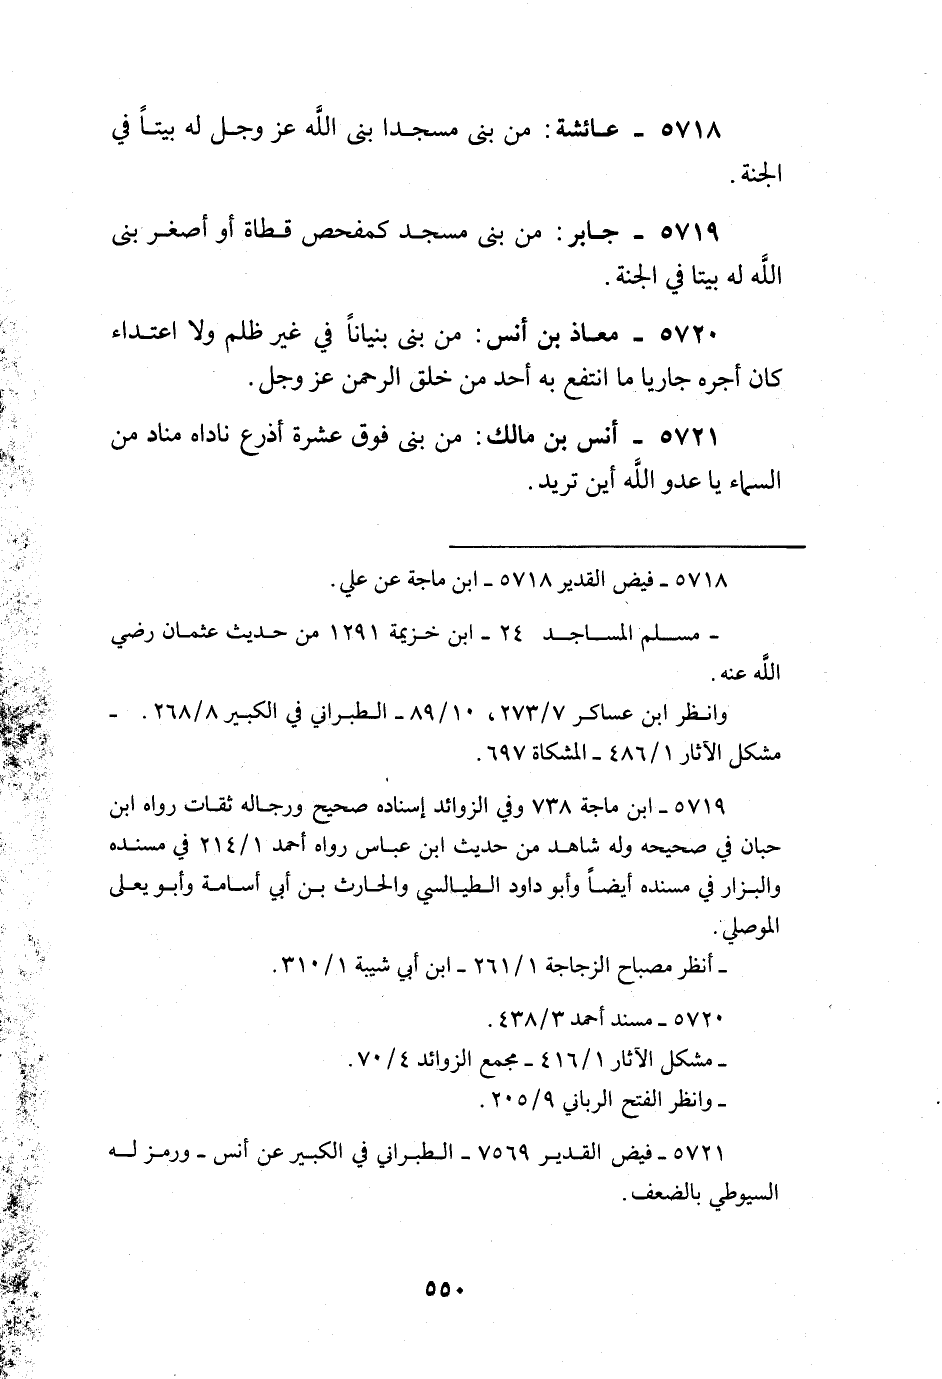 ٥٧١٨ ـ عـائشة: من بنى مسجـدا بنى اللَّه عز وجـل له بيتـاً في
الجنة.
٥٧١٩ ـ جـابر: من بنى مسجـد كمفحص قـطاة أو أصغـر بنى
اللَّه له بيتا في الجنة.
٥٧٢٠ ـ معـاذ بن أنس: من بنى بنياناً في غير ظلم ولا اعتـداء
كان أجره جاريا ما انتفع به أحد من خلق الرحمن عز وجل.
٥٧٢١ ـ أنس بن مالك: من بنى فوق عشرة أذرع ناداه مناد من
السماء يا عدو اللَّه أين تريد.
٥٧١٨ ـ فيض القدير ٥٧١٨ ـ ابن ماجة عن علي.
ـ مسـلم المسـاجـد ٢٤ ـ ابن خـزيمة ١٢٩١ من حـديث عثمـان رضي
اللَّه عنه.
وانـظر ابن عساكـر ٢٧٣/٧، ٨٩/١٠ ـ الـطبـراني في الكبيـر ٢٦٨/٨. ـ
مشكل الآثار ٤٨٦/١ ـ المشكاة ٦٩٧.
٥٧١٩ ـ ابن ماجة ٧٣٨ وفي الزوائد إسناده صحيح ورجاله ثقـات رواه ابن
حبان في صحيحه وله شاهـد من حديث ابن عبـاس رواه أحمد ٢١٤/١ في مسنـده
والبـزار في مسنده أيضـاً وأبو داود الـطيـالسي والحـارث بـن أبي أسـامـة وأبـو يعـلى
الموصلي.
ـ أنظر مصباح الزجاجة ٢٦١/١ ـ ابن أبي شيبة ٣١٠/١.
٥٧٢٠ ـ مسند أحمد ٤٣٨/٣.
ـ مشكل الآثار ٤١٦/١ ـ مجمع الزوائد ٧٠/٤.
ـ وانظر الفتح الرباني ٢٠٥/٩.
٥٧٢١ ـ فيض القـديـر ٧٥٦٩ ـ الـطبـراني في الكبيـر عن أنس ـ ورمـز لـه
السيوطي بالضعف.
٥٥٠